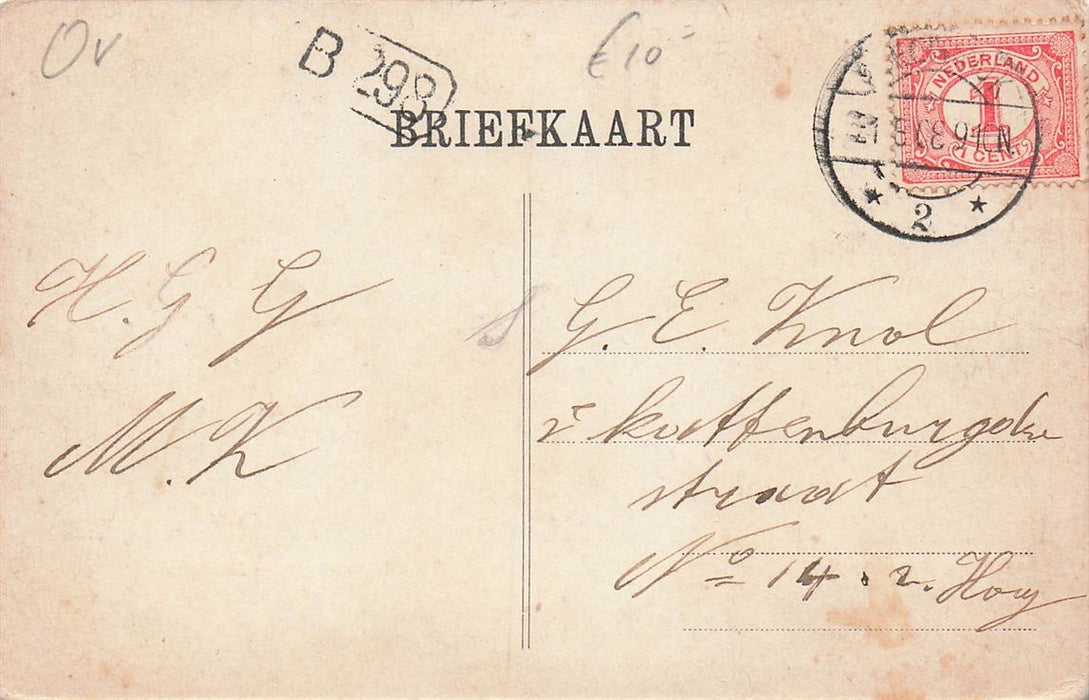 Ov
B 298
€10-
BRIEFKAART
NEDERLAND
1
1 CENT
2
H. G G
M. K
G. E. Knol
2e kattenburgdw
straat
No 14. 2. Hoog